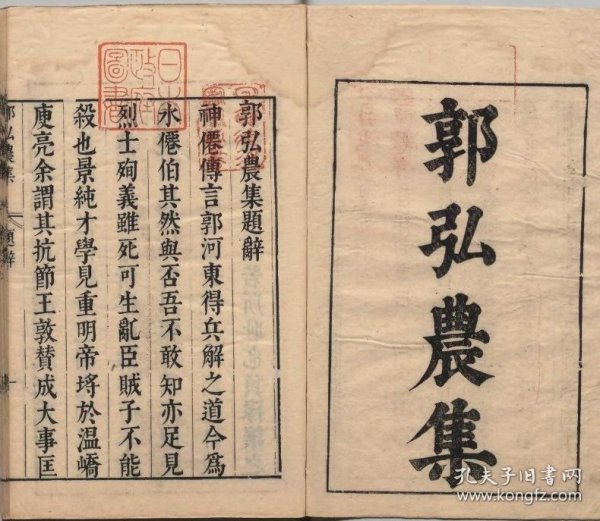 郭弘農集
郭弘農集題辭
神僊傳言郭河東得兵解之道今爲
水僊伯其然與否吾不敢知亦足見
烈士殉義雖死可生亂臣賊子不能
殺也景純才學見重明帝埒於溫嶠
庾亮余謂其抗節王敦贊成大事匡
郭弘農集
題辭
日本
政府
圖書
孔夫子旧书网
www.kongfz.com